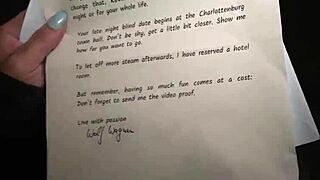 change that.
night or for your whole life.
Your late night blind date begins at the Charlottenburg
town hall. Don't be shy, get a little bit closer. Show me
how far you want to go.
To let off more steam afterwards, I have reserved a hotel
room.
But remember, having so much fun comes at a cost:
Don't forget to send me the video proof.
Love with passion
Wolf Wagner